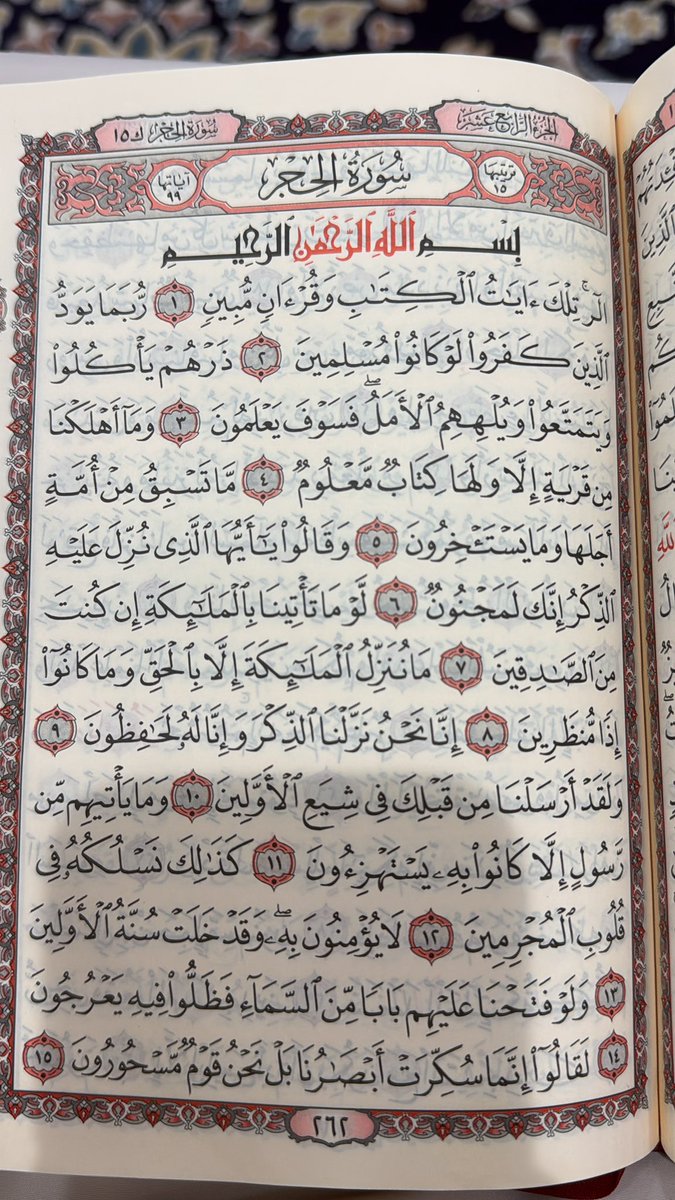 الجزء الرابع عشر
سورة الحجر ك ١٥
ترتيبها ١٥
سُورَةُ الحِجْرِ
آياتها ٩٩
بِسْمِ ٱللَّهِ ٱلرَّحْمَٰنِ ٱلرَّحِيمِ
الٓرۚ تِلْكَ ءَايَٰتُ ٱلْكِتَٰبِ وَقُرْءَانٍ مُّبِينٍ ١ رُّبَمَا يَوَدُّ
ٱلَّذِينَ كَفَرُوا۟ لَوْ كَانُوا۟ مُسْلِمِينَ ٢ ذَرْهُمْ يَأْكُلُوا۟
وَيَتَمَتَّعُوا۟ وَيُلْهِهِمُ ٱلْأَمَلُۖ فَسَوْفَ يَعْلَمُونَ ٣ وَمَآ أَهْلَكْنَا
مِن قَرْيَةٍ إِلَّا وَلَهَا كِتَابٌ مَّعْلُومٌ ٤ مَّا تَسْبِقُ مِنْ أُمَّةٍ
أَجَلَهَا وَمَا يَسْتَـْٔخِرُونَ ٥ وَقَالُوا۟ يَٰٓأَيُّهَا ٱلَّذِى نُزِّلَ عَلَيْهِ
ٱلذِّكْرُ إِنَّكَ لَمَجْنُونٌ ٦ لَّوْ مَا تَأْتِينَا بِٱلْمَلَٰٓئِكَةِ إِن كُنتَ
مِنَ ٱلصَّٰدِقِينَ ٧ مَا نُنَزِّلُ ٱلْمَلَٰٓئِكَةَ إِلَّا بِٱلْحَقِّ وَمَا كَانُوٓا۟
إِذًا مُّنظَرِينَ ٨ إِنَّا نَحْنُ نَزَّلْنَا ٱلذِّكْرَ وَإِنَّا لَهُۥ لَحَٰفِظُونَ ٩
وَلَقَدْ أَرْسَلْنَا مِن قَبْلِكَ فِى شِيَعِ ٱلْأَوَّلِينَ ١٠ وَمَا يَأْتِيهِم مِّن
رَّسُولٍ إِلَّا كَانُوا۟ بِهِۦ يَسْتَهْزِءُونَ ١١ كَذَٰلِكَ نَسْلُكُهُۥ فِى
قُلُوبِ ٱلْمُجْرِمِينَ ١٢ لَا يُؤْمِنُونَ بِهِۦۖ وَقَدْ خَلَتْ سُنَّةُ ٱلْأَوَّلِينَ
١٣ وَلَوْ فَتَحْنَا عَلَيْهِم بَابًا مِّنَ ٱلسَّمَآءِ فَظَلُّوا۟ فِيهِ يَعْرُجُونَ
١٤ لَقَالُوٓا۟ إِنَّمَا سُكِّرَتْ أَبْصَٰرُنَا بَلْ نَحْنُ قَوْمٌ مَّسْحُورُونَ ١٥
٢٦٢